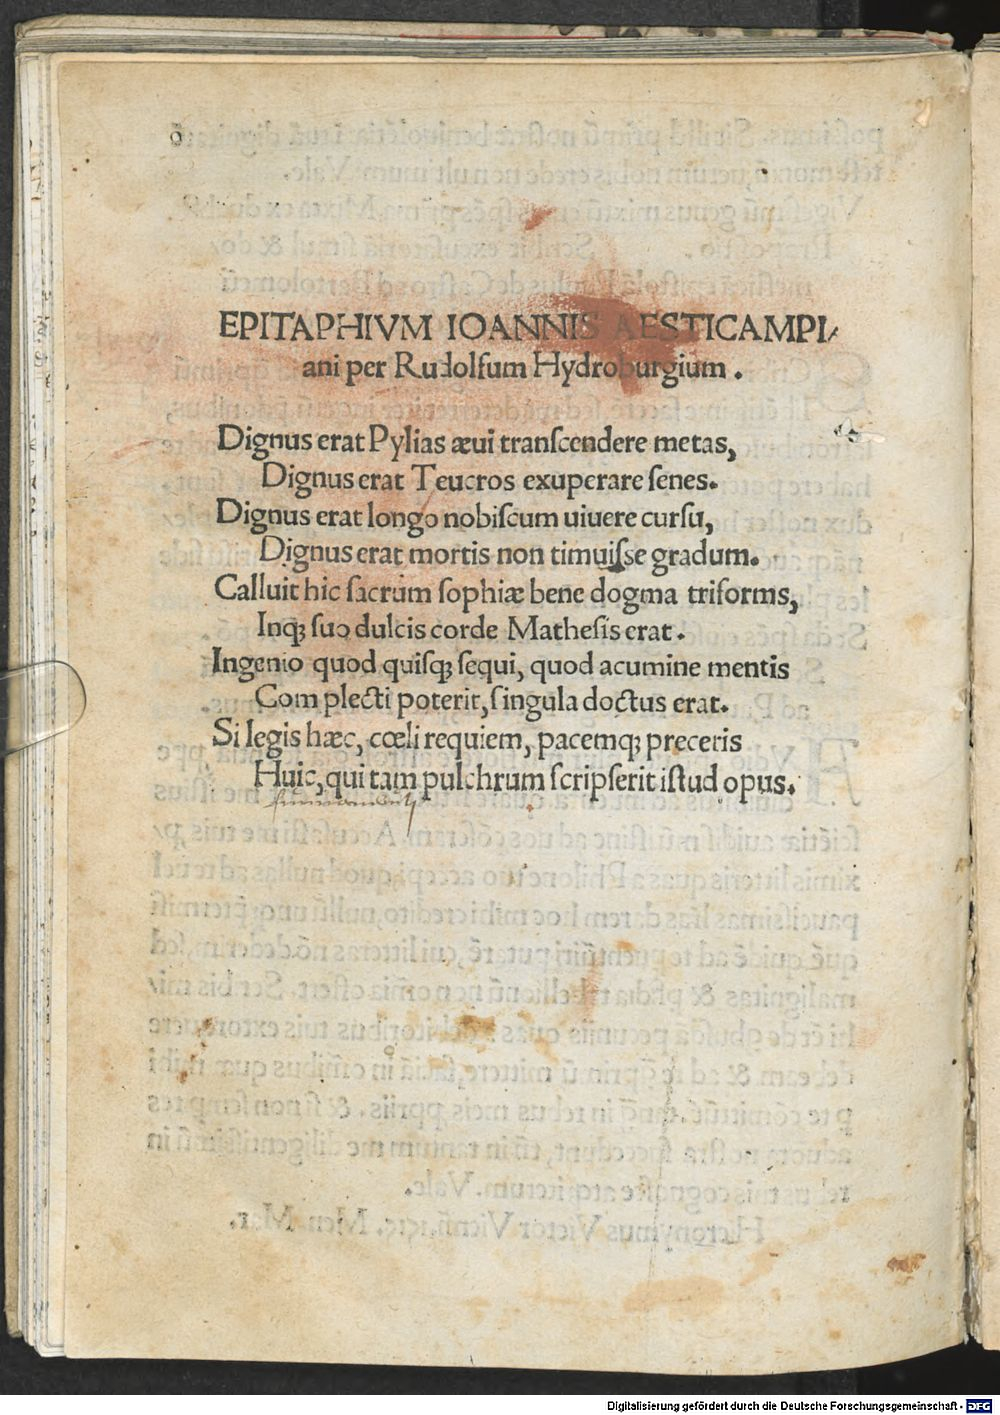 EPITAPHIVM IOANNIS AESTICAMPI/
ani per Rudolfum Hydroburgium .
Dignus erat Pylias æui tranſcendere metas,
Dignus erat Teucros exuperare ſenes.
Dignus erat longo nobiſcum uiuere curſu,
Dignus erat mortis non timuiſse gradum.
Calluit hic ſacrum ſophiæ bene dogma triformis,
Inqꝫ ſuo dulcis corde Matheſis erat .
Ingenio quod quiſqꝫ ſequi, quod acumine mentis
Complecti poterit, ſingula doctus erat.
Si legis hæc, cœli requiem, pacemqꝫ preceris
Huic, qui tam pulchrum ſcripſerit iſtud opus.
Digitalisierung gefördert durch die Deutsche Forschungsgemeinschaft - DFG